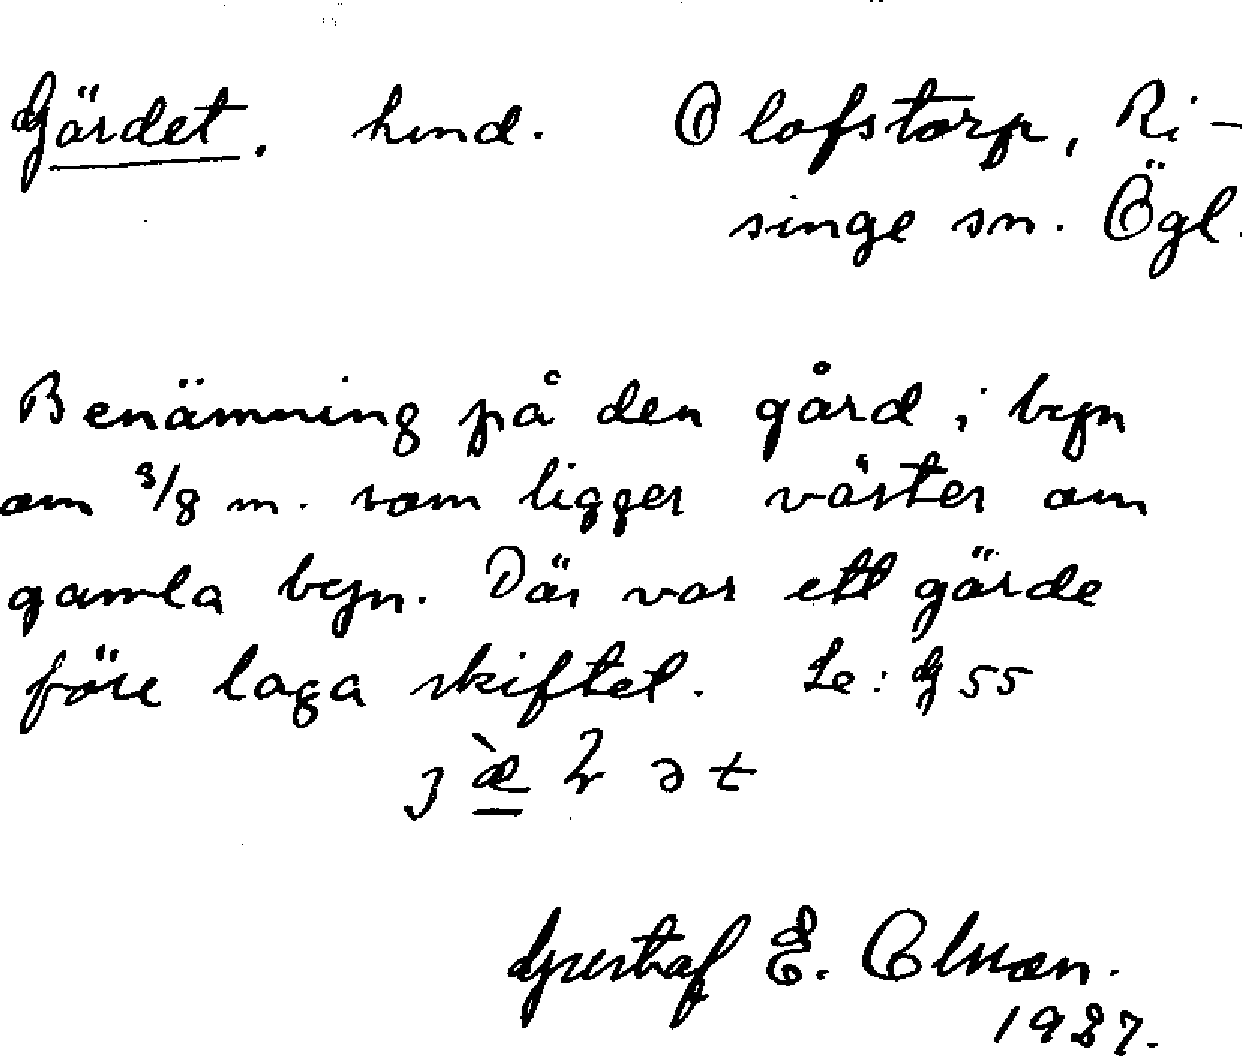 Gärdet, hmd. Olofstorp, Ri-
singe sn. Ögl.
Benämning på den gård i byn
om 3/8 m. som ligger väster om
gamla byn. Där var ett gärde
före laga skiftet. Le: G 55
Gustaf E. Olsson.
1927.